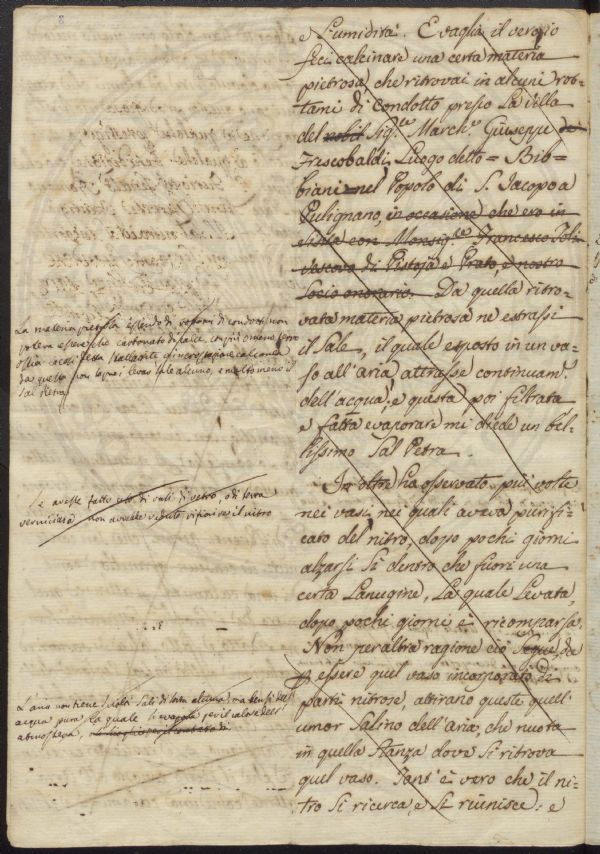 8
e L'umidità. E vaglia il vero, io
feci calcinare una certa materia
pietrosa, che ritrovai in alcuni rot=
tami di Condotto presso La villa
del nobil Sig.re March.e Giuseppe de
Frescobaldi, Luogo detto = Bib=
biani = nel Popolo di S. Jacopo a
Pulignano, in occasione che ero in
visita con Monsig.re Francesco Poli
vescovo di Pistoja e Prato, e nostro
Socio onorario. Da quella ritro=
vata materia pietrosa ne estrassi
il Sale, il quale esposto in un va=
so all'aria, attrasse continuam.e
dell'acqua, e questa poi filtrata
e fatta evaporare mi diede un bel=
lissimo Sal Petra.
La materia pietrosa essendo di rottami di condotto non
poteva essere che carbonato di calce
da questa non saprei levar sale alcuno, e molto meno il
Sal Pietra
In oltre ho osservato più volte
nei vasi, nei quali aveva purifi=
cato del nitro, dopo pochi giorni
alzarsi Sì dentro che fuori una
certa Lanugine, La quale Levata,
dopo pochi giorni è ricomparsa.
Non per altra ragione ciò Segue, che
p. essere quel vaso incorporato di
parti nitrose, attirano queste quell'
umor Salino dell'Aria, che nuota
in quella Stanza dove Si ritrova
quel vaso. Tant'è vero che il ni=
tro Si ricerca, e Si riunisce: e
Se avesse fatto uso di vasi di vetro, o di terra
verniciata non avrebbe veduto rifiorire il nitro
L'aria non tiene sciolti Sali di sorta alcuna, ma bensì dell'
acqua pura, la quale si evapora per il calore dell'
atmosfera,